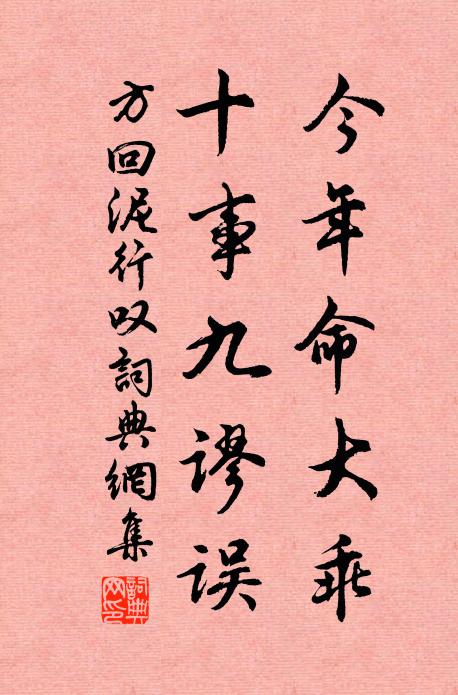 今年命大乖
十事九謬误
方回泥行叹詞典網集
詞典网印